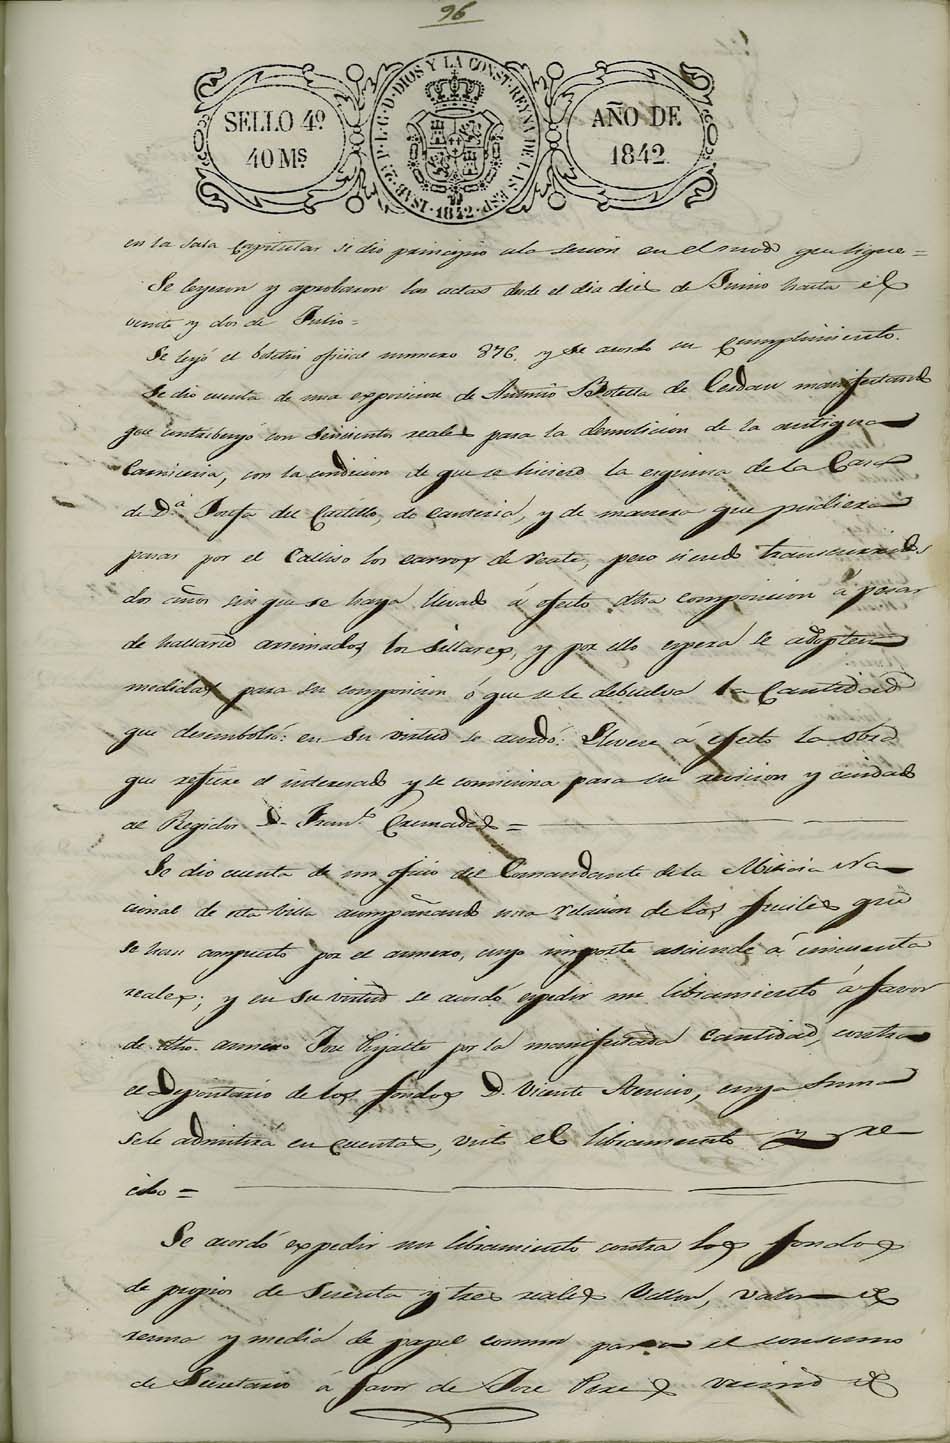 96
SELLO 4º
40 Mˢ
ISAB. 2ª P. L. G. D. DIOS Y LA CONST. REYNA DE LAS ESP. 1842
AÑO DE
1842.
en la sala Capitular se dio principio ala sesion en el modo que sigue =
Se leyeron y aprobaron las actas desde el dia diez de Junio hasta el
veinte y dos de Julio =
Se leyó el boletin oficial numero 876. y se acordo su Cumplimiento.
Se dio cuenta de una exposicion de Antonio Botella de Cerdan manifestando
que contribuyó con seiscientos reales para la demolicion de la antigua
Carniceria, con la condicion de que se hiciera la esquina de la Casa
de D.ª Josefa del Castillo, de canteria, y de manera que pudieran
pasar por el Callizo los carros de trato, pero siendo transcurridos
dos años sin que se haya llevado á efecto dha composicion á pesar
de hallarse arrimados los sillares, y por ello espera se adopten
medidas para su composicion ó que se le debuelva la Cantidad
que desembolsó: en su virtud se acordó: Llevese á efecto la obra
que refiere el interesado y se comisiona para su revision y cuidado
al Regidor D. Fran.co =
Se dio cuenta de un oficio del Comandante de la Milicia Na
cional de esta Villa acompañando una relacion de los fusiles que
se han compuesto por el armero, cuyo importe asciende á cincuenta
reales; y en su virtud se acordó espedir un libramiento á favor
de dho. armero Jose por la manifestada cantidad, contra
el Depositario de los fondos D. Vicente Asensio, cuya suma
se le admitirá en cuentas, visto el libramiento y re
cibo =
Se acordó expedir un libramiento contra los fondos
de propios de sesenta y tres reales Vellon, valor de
resma y media de papel comun para el consumo
de Secretaria á favor de Jose Perez vecino de